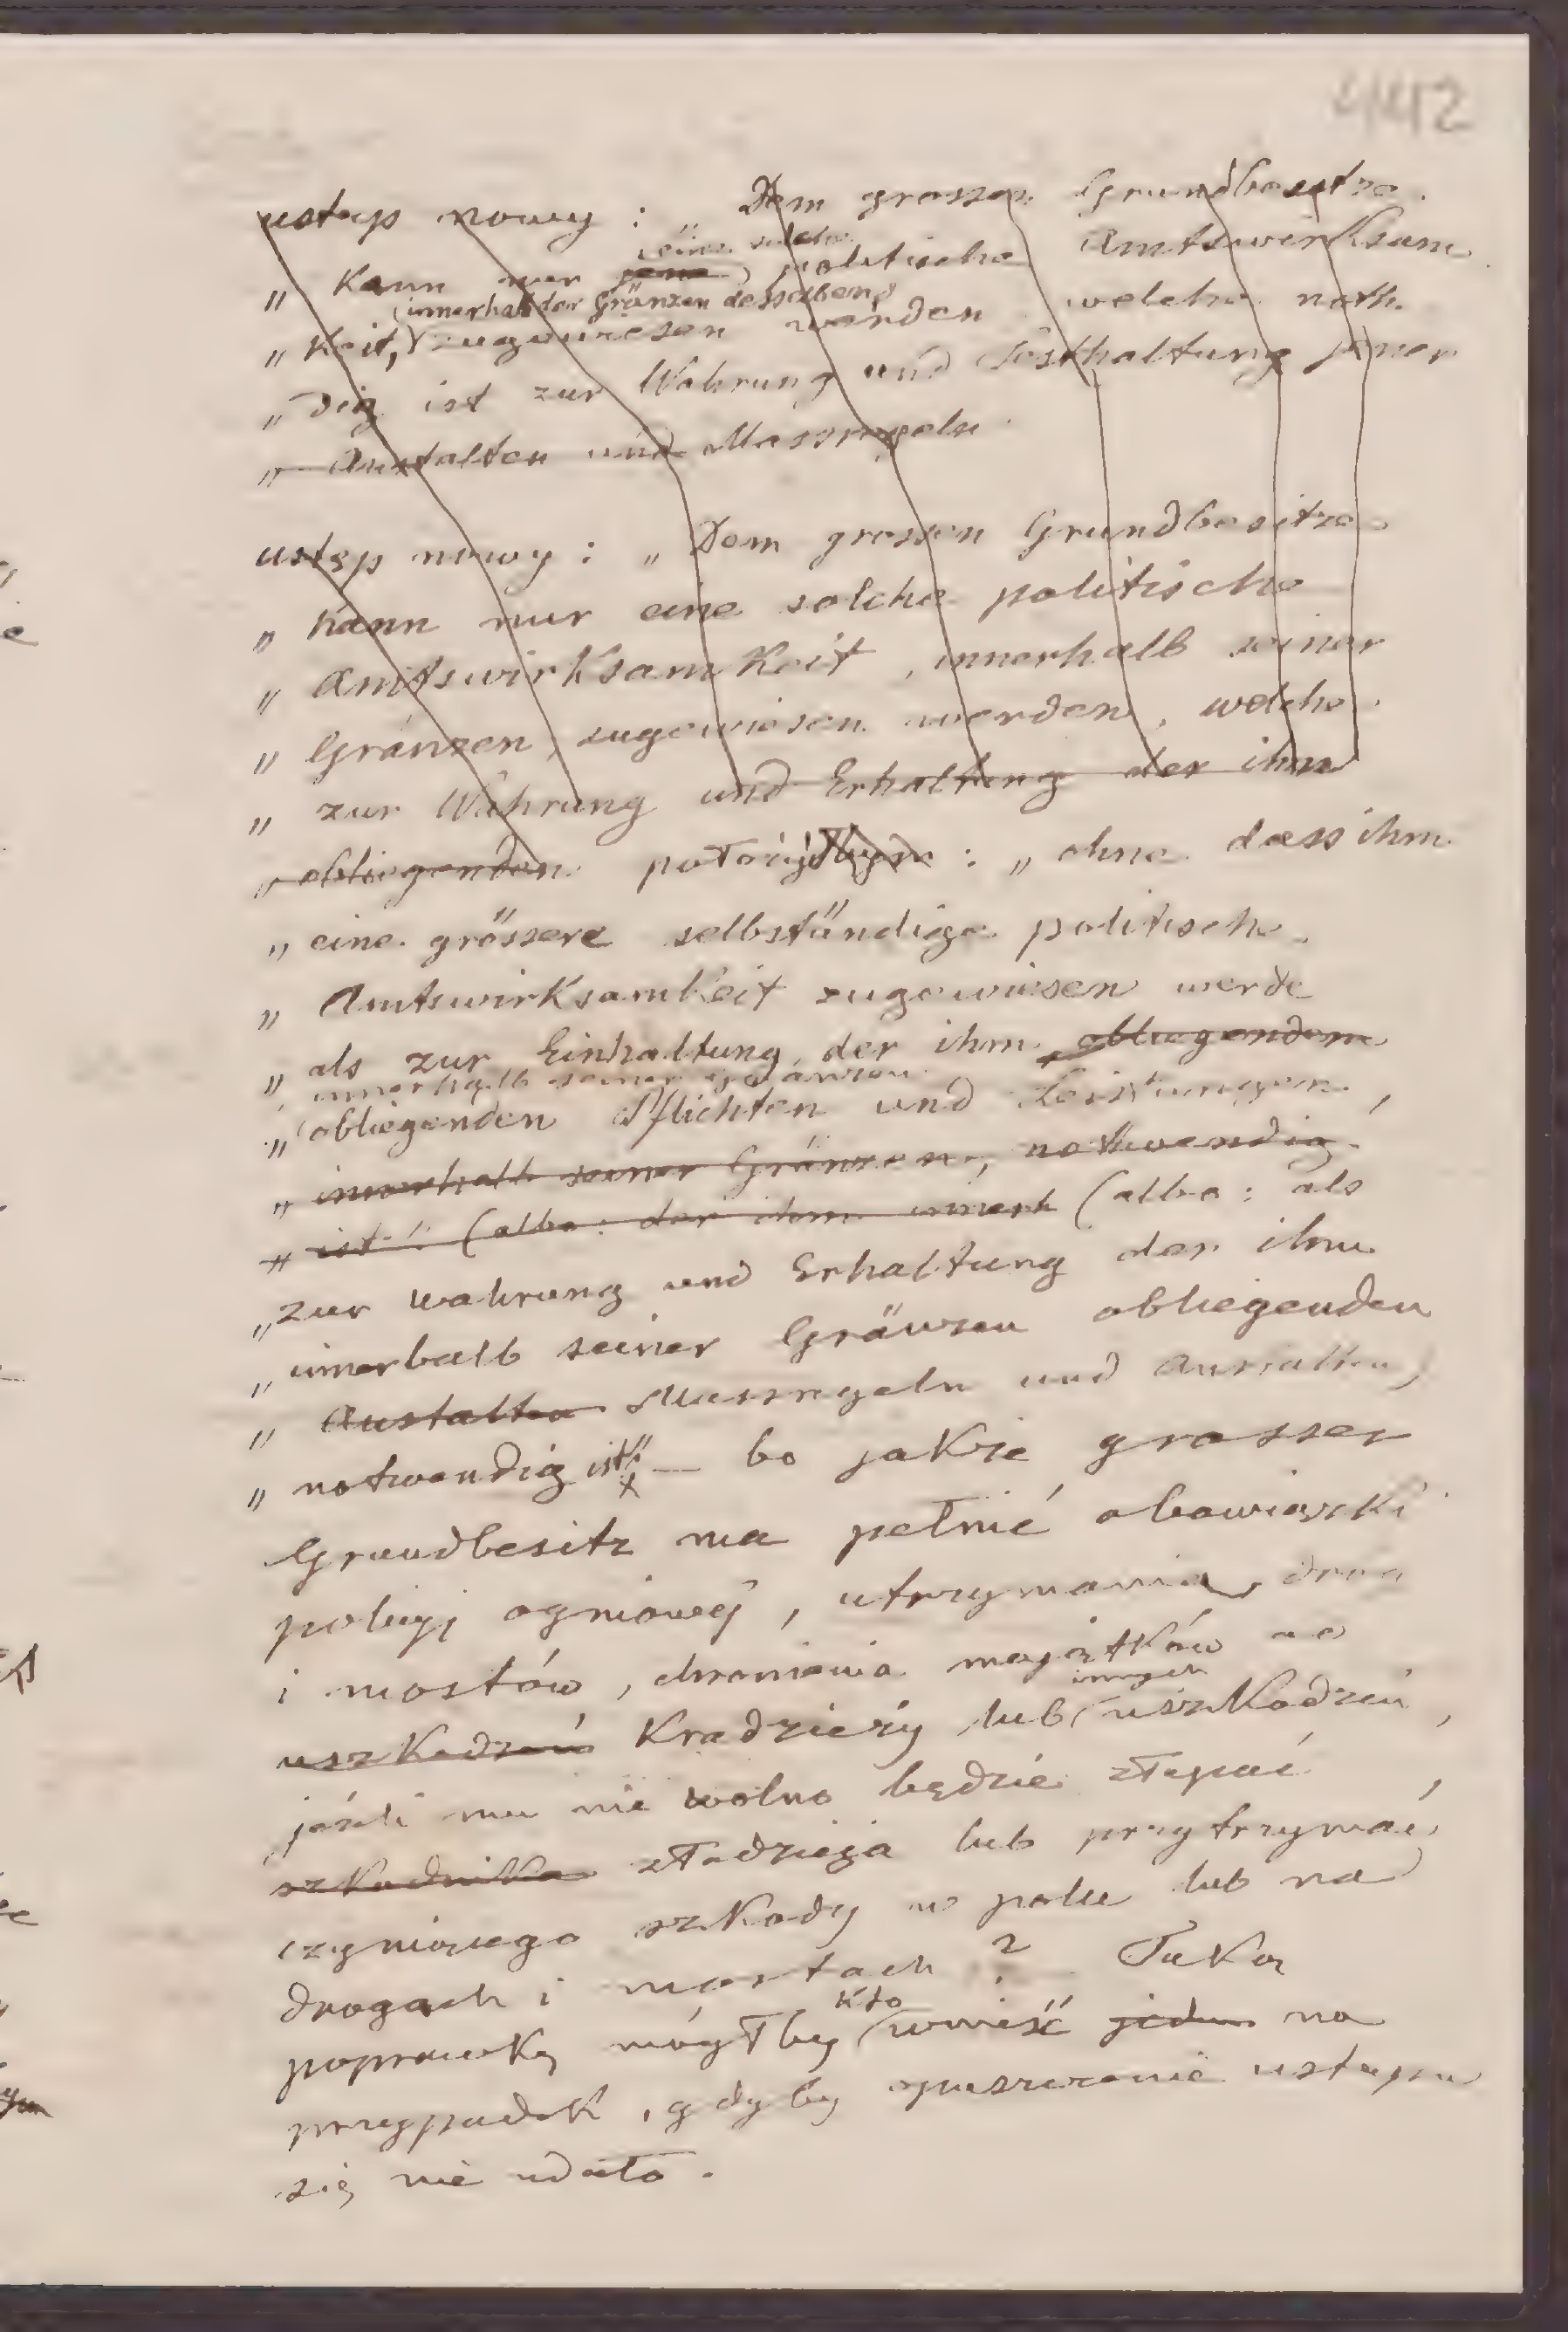 442
ustęp nowy : „ Dem grossen Grundbesitze
„ kann nur jene eine solche politische Amtswirksam
„ keit, innerhalb der Gränzen desselben zugewiesen werden welche noth
„ dig ist zur Wahrung und Festhaltung jener
„ Anstalten und Massregeln
ustęp nowy : „ Dem grossen Grundbesitze
„ kann nur eine solche politische
„ Amtswirksamkeit, innerhalb seiner
„ Gränzen, zugewiesen werden, welche
„ zur Wahrung und Erhaltung der ihm
„ obliegenden : „ ohne dass ihm
„ eine grössere selbständige politische
„ Amtswirksamkeit zugewiesen werde
„ als zur Einhaltung der ihm obliegendem
innerhalb seiner Gränzen
„ obliegenden Pflichten und Leistungen,
„ innerhalb seiner Gränzen, nothwendig
„ ist" (albo: der ihm innerh (albo: als
„ zur Wahrung und Erhaltung der ihm
„ innerhalb seiner Gränzen obliegenden
„ Anstalten Massregeln und Anstalten,
„ notwendig ist" — bo jakże grosser
Grundbesitz ma pełnić obowiązki
policyi ogniowéj, utrzymania dróg
i mostów, chronienia majątków od
uszkodzeń kradzieży lub innych uszkodzeń,
jeżeli mu nie wolno będzie złapać
szkodnika złodzieja lub przytrzymać,
czyniącego szkody w polu lub na
drogach i mostach ? Taką
poprawkę mógłby kto wnieść jedn na
przypadek, gdyby opuszczenie ustępu
się nie udało.